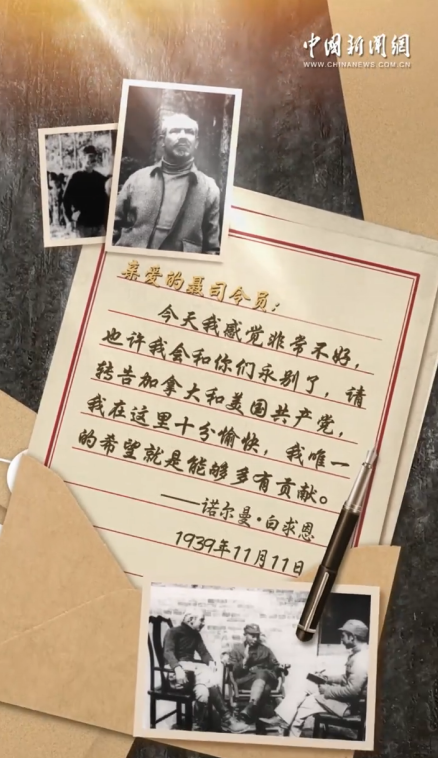 中国新闻网
WWW.CHINANEWS.COM.CN
亲爱的聂司令员：
今天我感觉非常不好，
也许我会和你们永别了，请
转告加拿大和美国共产党，
我在这里十分愉快，我唯一
的希望就是能够多有贡献。
——诺尔曼·白求恩
1939年11月11日